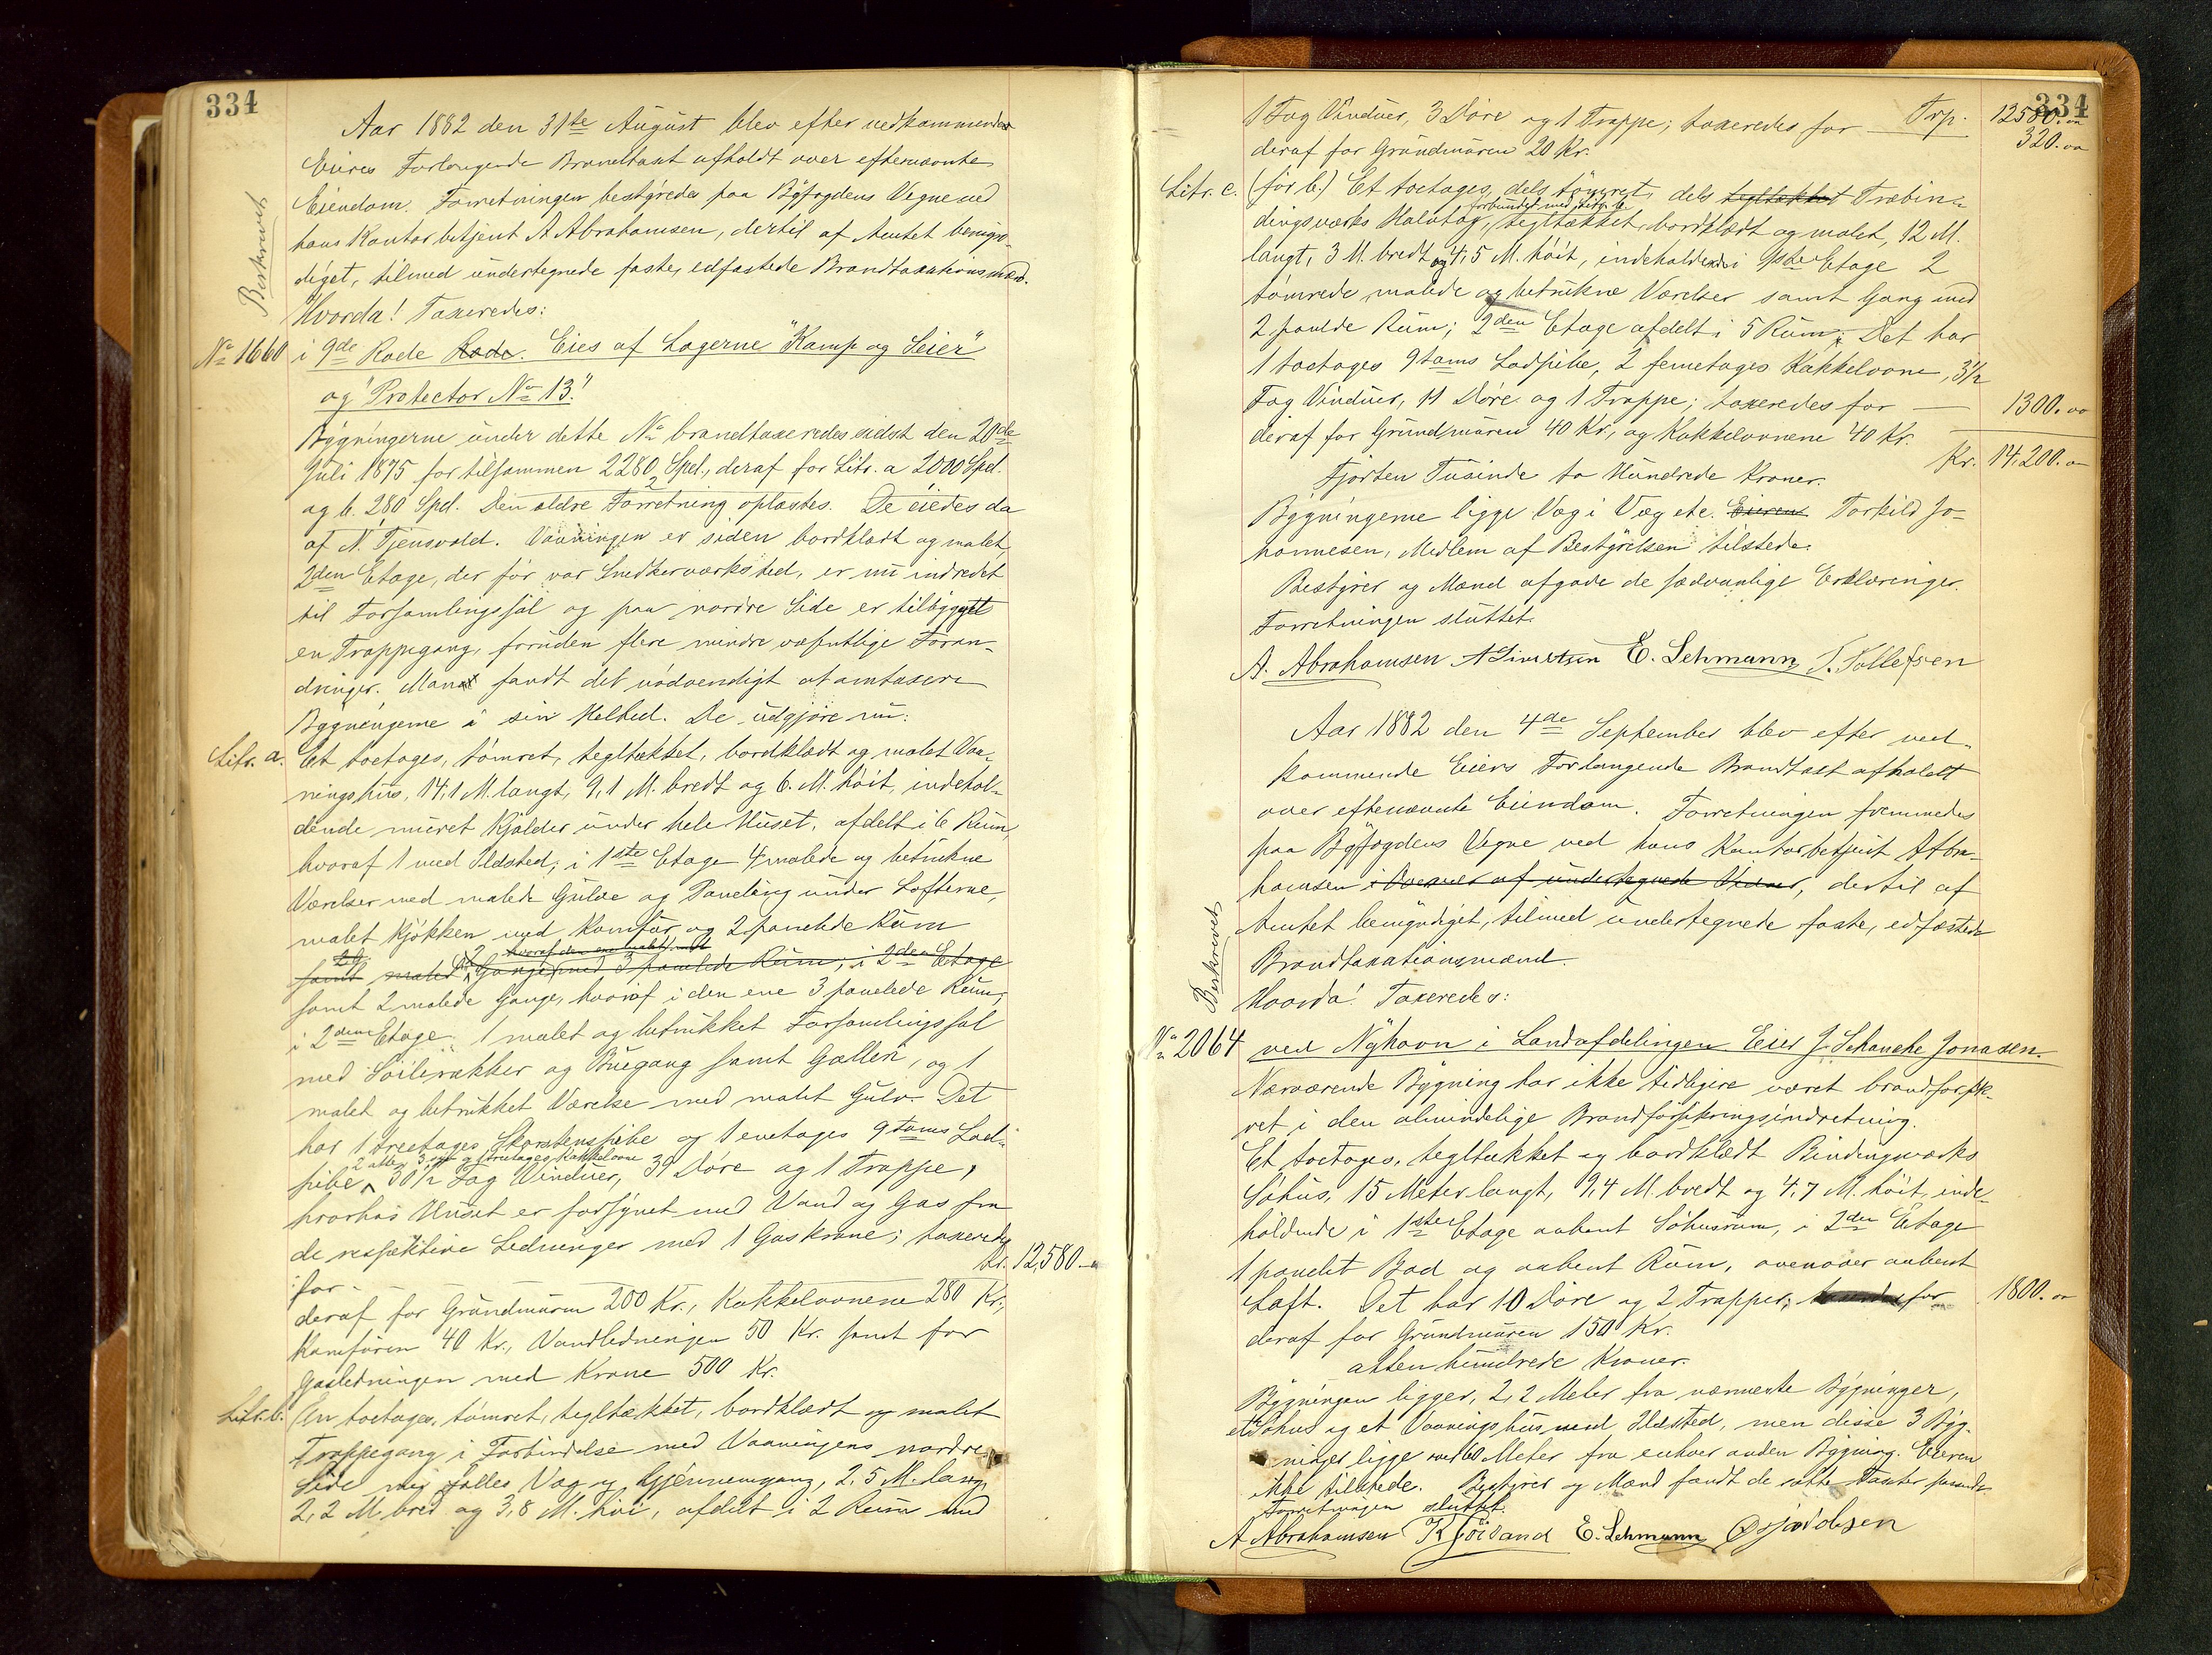 334
Aar 1882 den 31te August blev efter vedkommende
Eiers Forlangende Brandtaxt afholdt over efternævnte
Eiendom. Forretningen bestyredes paa Byfogdens Vegne ved
hans Kontorbetjent A Abrahamsen, dertil af Amtet bemyn-
diget, tilmed undertegnede faste, edfæstede Brandtaxationsmænd.
Beskrevet
Hvorda! Taxeredes:
No 1660 i 9de Rode Rode. Eies af Logerne "Kamp og Seier"
og "Protector No 13."
Bygningerne under dette No brandtaxeredes sidst den 20de
Juli 1875 for tilsammen 2280 Spd., deraf for Litr. a 2000 Spd.
og b. 280 Spd. Den ældre Forretning oplæstes. De eiedes da
af N. Tjensvold. Vaaningen er siden bordklædt og malet,
2den Etage, der før var Snedkerværksted, er nu indredet
til Forsamlingssal og paa nordre Side er tilbygget
en Trappegang, foruden flere mindre væsentlige Foran-
dringer. Man fandt det nødvendigt at omtaxere
Bygningerne i sin Helhed. De udgjøre nu:
Litr. a. Et toetages, tømret, tegltækket, bordklædt og malet Vaa-
ningshus, 14,1 M. langt, 9,1 M. bredt og 6. M. høit, indehol-
dende muret Kjælder under hele Huset, afdelt i 6 Rum,
hvoraf 1 med Ildsted; i 1ste Etage 4 malede og betrukne
Værelser med malede Gulve og Paneling under Lofterne,
malet Kjøkken med Komfur og 2 panelede Rum
hvoraf den ene malet
samt malede Gange med 3 panelede Rum; i 2den Etage
samt 2 malede Gange, hvoraf i den ene 3 panelede Rum;
i 2den Etage 1 malet og betrukket Forsamlingssal
med Søilerækker og Buegang samt Galleri, og 1
malet og betrukket Værelse med malet Gulv. Det
har 1 treetages Skorstenspibe og 1 enetages 9toms Lod-
2 otte, 3 og treetages Kakkelovne
pibe, 30½ Fag Vinduer, 39 Døre og 1 Trappe,
hvorhos Huset er forsynet med Vand og Gas fra
de respektive Ledninger med 1 Gaskrone; taxeredes
for Kr. 12,580.
deraf for Grundmuren 200 Kr., Kakkelovnene 280 Kr.,
Komfuren 40 Kr., Vandledningen 50 Kr. samt for
Gasledningen med Krone 500 Kr.
Litr. b. En toetages, tømret, tegltækket, bordklædt og malet
Trappegang i Forbindelse med Vaaningens nordre
Side ved fælles Væg og Gjennemgang, 2,5 M. lang,
2,2 M. bred og 3,8 M. høi, afdelt i 2 Rum med
334
1 Fag Vinduer, 3 Døre og 1 Trappe; taxeredes for Trp. 12580.00
320.00
deraf for Grundmuren 20 Kr.
Litr. c. (før b.) Et toetages, dels tømret, dels tegltækket Træbin-
forbundet med Litr. b.
dingsværks Halvtag, tegltækket, bordklædt og malet, 12 M.
langt, 3 M. bredt og 4,5 M. høit, indeholdende i 1ste Etage 2
tømrede, malede og betrukne Værelser samt Gang med
2 panelede Rum; 2den Etage afdelt i 5 Rum. Det har
1 toetages 9toms Lodpibe, 2 femetages Kakkelovne, 3½
Fag Vinduer, 11 Døre og 1 Trappe; taxeredes for 1300.00
deraf for Grundmuren 40 Kr., og Kakkelovnene 40 Kr.
Kr. 14,200.
Fjorten Tusinde to Hundrede Kroner.
Bygningerne ligge Væg i Væg etc. Eieren Torkild Jo-
hannesen, Medlem af Bestyrelsen tilstede.
Bestyrer og Mænd afgave de sædvanlige Erklæringer.
Forretningen sluttet.
A. Abrahamsen A Simensen E. Lehmann T. Tollefsen
Aar 1882 den 4de September blev efter ved-
kommende Eiers Forlangende Brandtaxt afholdt
over efternævnte Eiendom. Forretningen fremmedes
paa Byfogdens Vegne ved hans Kontorbetjent A Abra-
hamsen i Overvær af undertegnede Vidner, dertil af
Amtet bemyndiget, tilmed undertegnede faste, edfæstede
Brandtaxationsmænd.
Beskrevet
Hvorda! Taxeredes:
No 2064 ved Nyhavn i Landafdelingen. Eier J. Schanche Jonasen.
Nærværende Bygning har ikke tidligere været brandforsik-
ret i den almindelige Brandforsikringsindretning.
Et toetages, tegltækket og bordklædt Bindingsværks
Søhus, 15 Meter langt, 9,4 M. bredt og 4,7 M. høit, inde-
holdende i 1ste Etage aabent Søhusrum, i 2den Etage
1 panelet Bod og aabent Rum, ovenover aabent
Loft. Det har 10 Døre og 2 Trapper; for 1800.
deraf for Grundmuren 150 Kr.
atten hundrede Kroner.
Bygningen ligger 2,2 Meter fra nærmeste Bygninger,
et Søhus og et Vaaningshus med Ildsted, men disse 3 Byg-
ninger ligge over 60 Meter fra enhver anden Bygning. Eieren
ikke tilstede. Bestyrer og Mænd fandt de satte Taxter passende.
Forretningen sluttet.
A Abrahamsen E. Lehmann